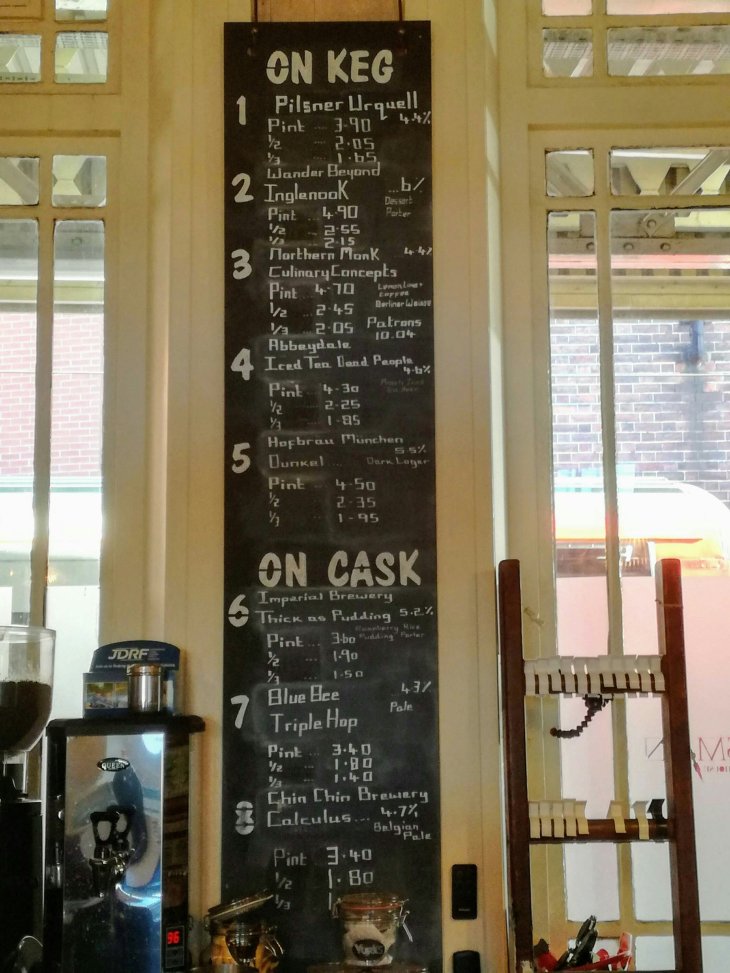 ON KEG
1 Pilsner Urquell
4.4%
Pint .... 3.90
1/2 ... 2.05
1/3 ... 1.65
Wander Beyond
2 Inglenook ...6%
Dessert
Porter
Pint ... 4.90
1/2 ... 2.55
1/3 ... 2.15
3 Northern Monk 4.4%
Culinary Concepts
Pint ... 4.70
Lemon Lime +
Coffee
Berliner Weisse
1/2 ... 2.45
1/3 ... 2.05
Patrons
10.04
Abbeydale
4 Iced Tea Dead People
4.6%
Pint ... 4.30
1/2 ... 2.25
1/3 ... 1.85
Hofbrau Munchen
5 5.5%
Dunkel ... Dark Lager
Pint ... 4.50
1/2 ... 2.35
1/3 ... 1.95
ON CASK
Imperial Brewery
6 Thick as Pudding 5.2%
Raspberry Rice
Pudding Porter
Pint ... 3.60
1/2 ... 1.90
1/3 ... 1.50
7 Blue Bee 4.3%
Pale
Triple Hop
Pint ... 3.40
1/2 ... 1.80
1/3 ... 1.40
Chin Chin Brewery
8 Calculus... 4.7%
Belgian
Pale
Pint 3.40
1/2 1.80
1/3
JDRF
QUEEN
96